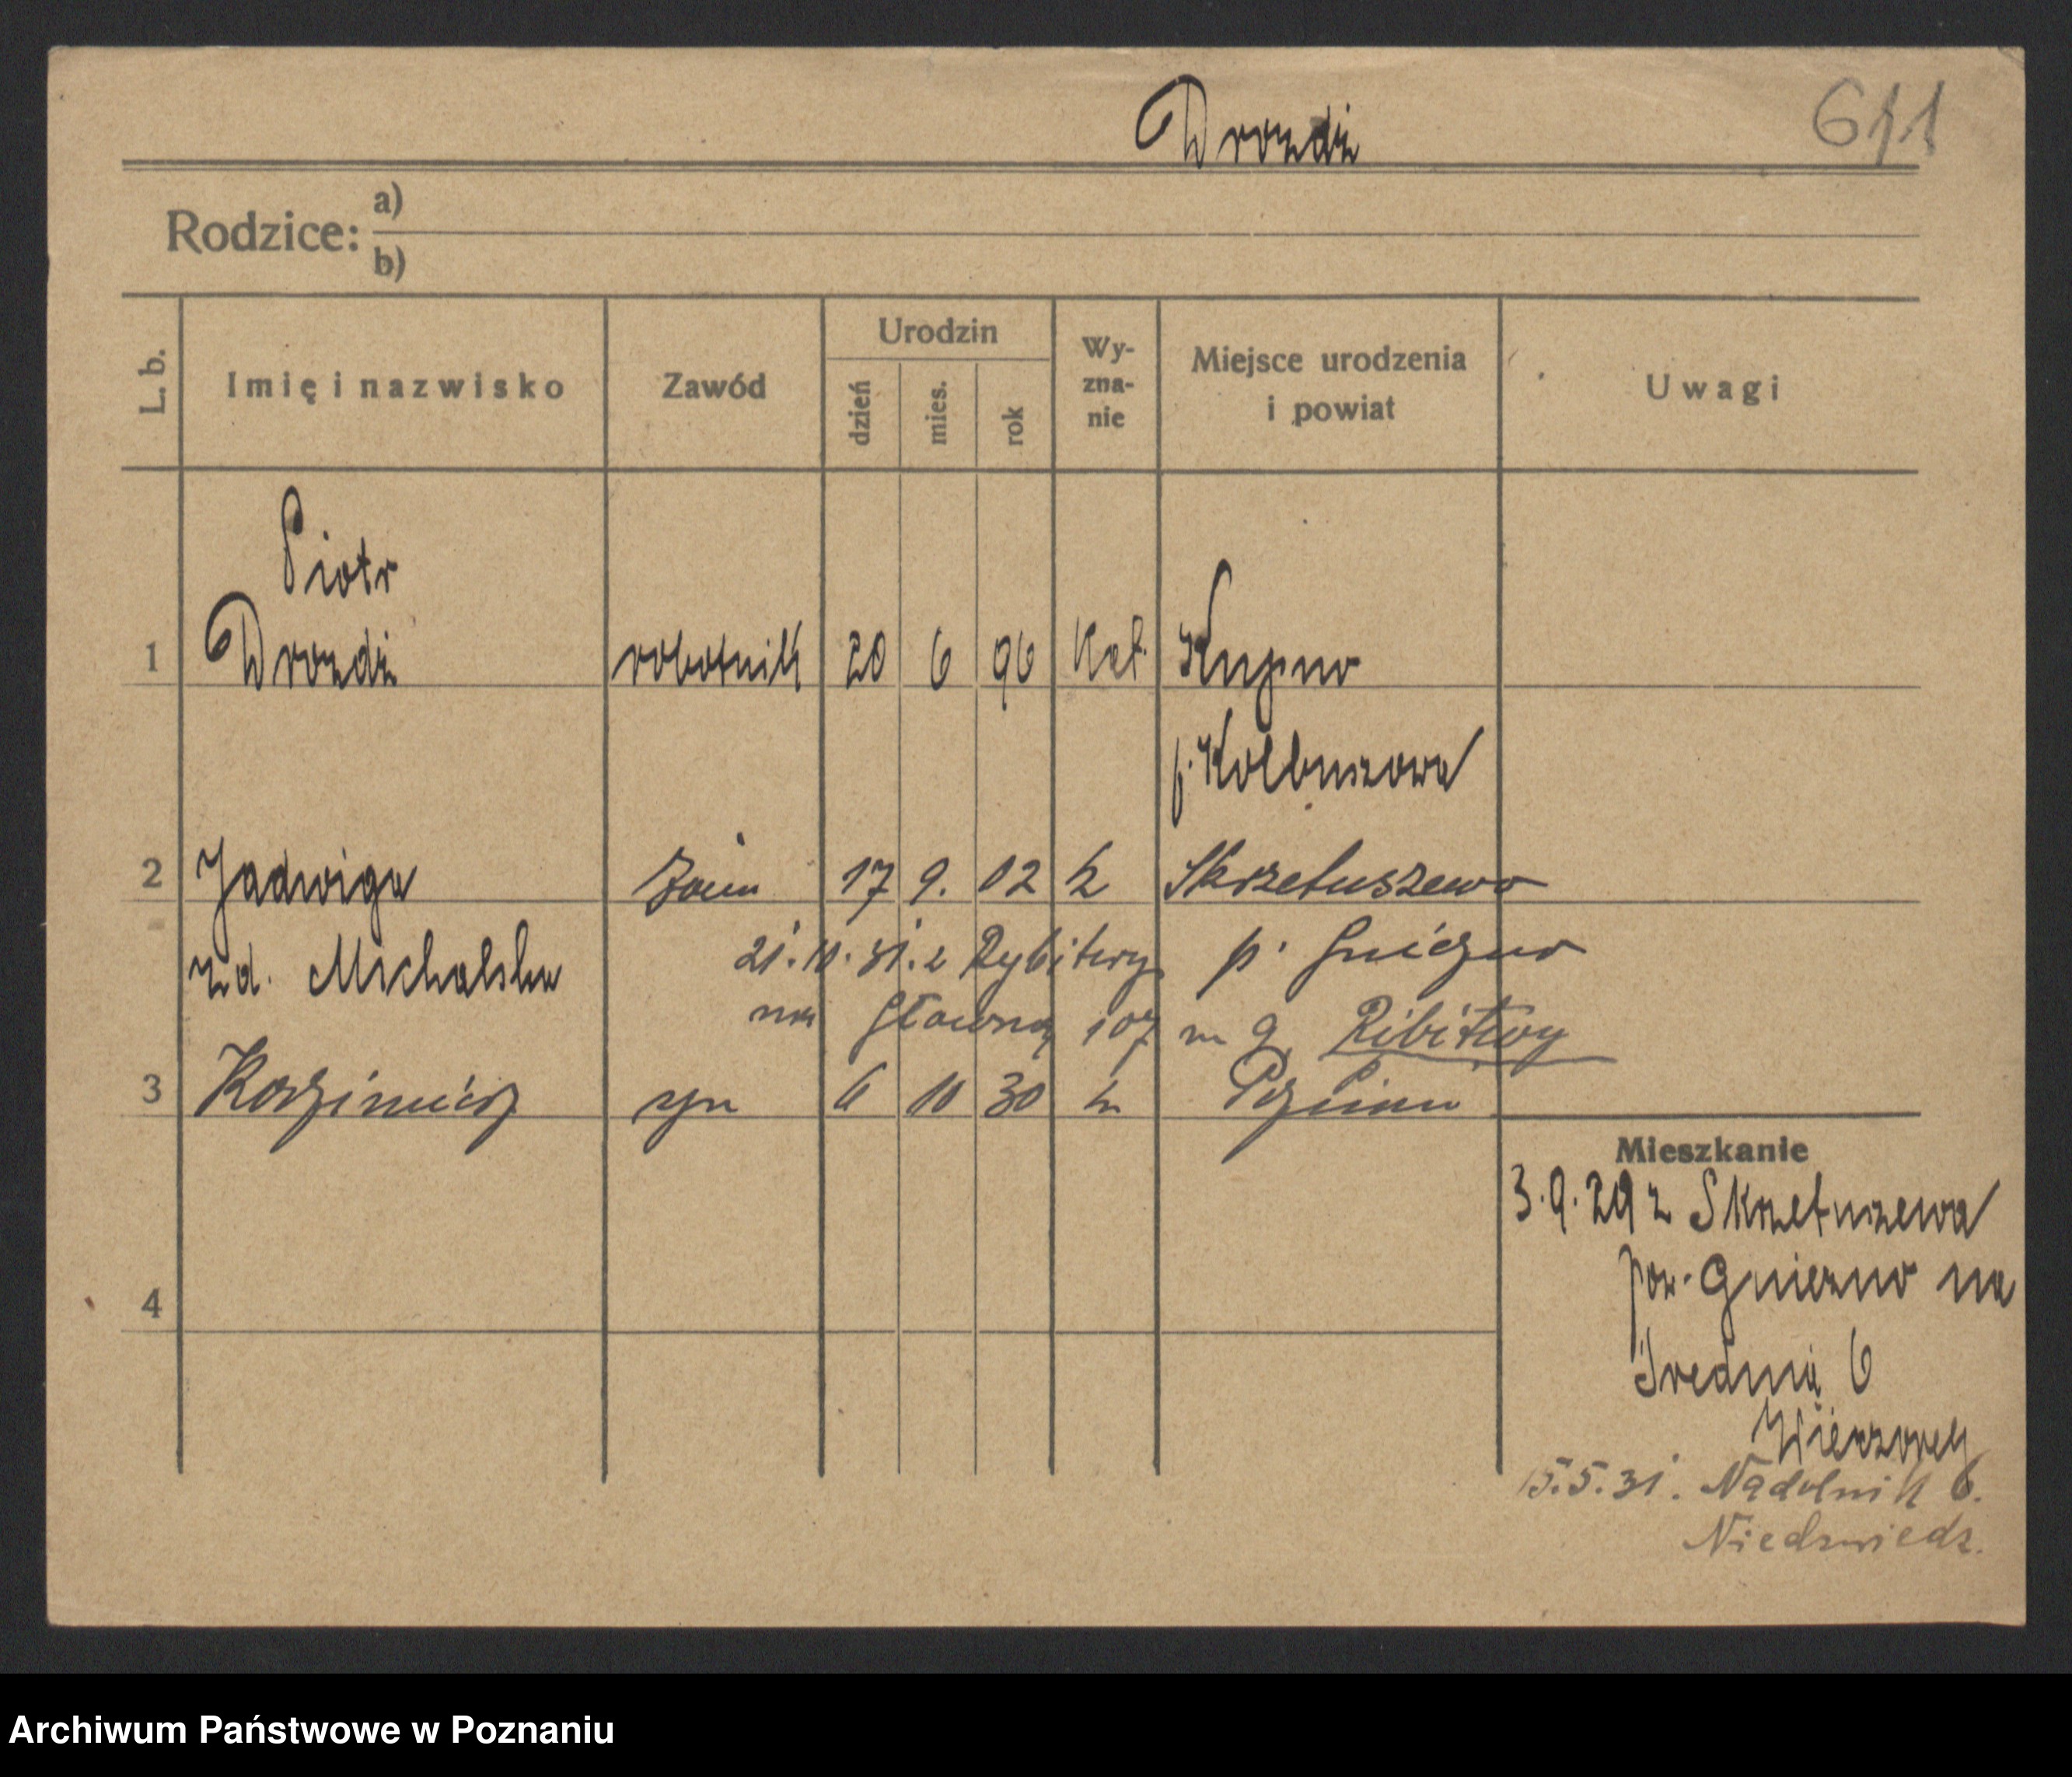 Drozdż
611
Rodzice: a)
b)
L. b.
Imię i nazwisko
Zawód
Urodzin
dzień
mies.
rok
Wy-
zna-
nie
Miejsce urodzenia
i powiat
Uwagi
Piotr
1 Drozdż robotnik 20 6 96 Kat. Kupno
p. Kolbuszowa
2 Jadwiga żona 17 9. 02 k Skrzetuszewo
zd. Michalska
p. Gniezno
21.10.31. z Rybitwy
na Główną 107 m 9. Ribitwy
3 Kazimierz syn 6 10 30 k Poznań
Mieszkanie
3.9.29 z Skrzetuszewa
pow. Gniezno na
Średnią 6
4
15.5.31. Nadolnik 6.
Niedzwiedz.
Archiwum Państwowe w Poznaniu